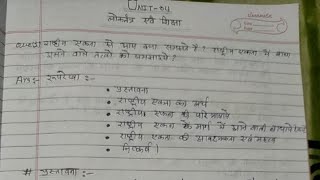 UNIT-04
लोकतंत्र एवं शिक्षा
राष्ट्रीय एकता से आप क्या समझते हैं? राष्ट्रीय एकता में बाधा
वाले तत्वों को समझाइये।
Ans:- रूपरेखा :-
• प्रस्तावना
• राष्ट्रीय एकता का अर्थ
• राष्ट्रीय एकता की परिभाषाएँ
• राष्ट्रीय एकता के मार्ग में आने वाली बाधाएँ
• राष्ट्रीय एकता की आवश्यकता एवं महत्व
• निष्कर्ष।
# प्रस्तावना :-